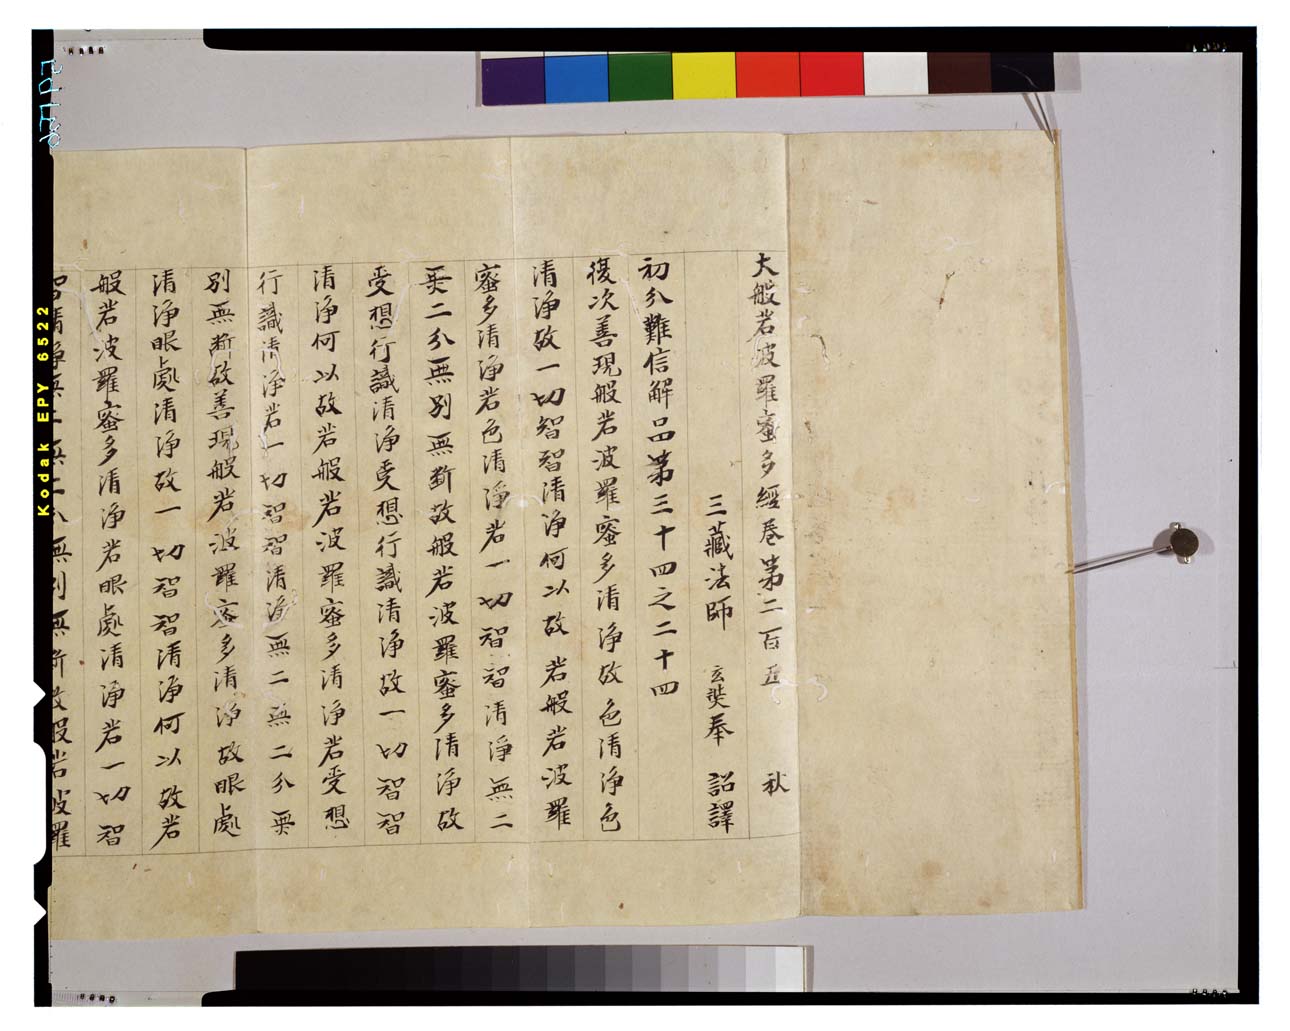 大般若波羅蜜多經卷第二百五　秋
三藏法師　玄奘奉　詔譯
初分難信解品第三十四之二十四
復次善現般若波羅蜜多清淨故色清淨色
清淨故一切智智清淨何以故若般若波羅
蜜多清淨若色清淨若一切智智清淨無二
無二分無別無斷故般若波羅蜜多清淨故
受想行識清淨受想行識清淨故一切智智
清淨何以故若般若波羅蜜多清淨若受想
行識清淨若一切智智清淨無二無二分無
別無斷故善現般若波羅蜜多清淨故眼處
清淨眼處清淨故一切智智清淨何以故若
般若波羅蜜多清淨若眼處清淨若一切智
智清淨無二無二分無別無斷故般若波羅
Kodak EPY 6522